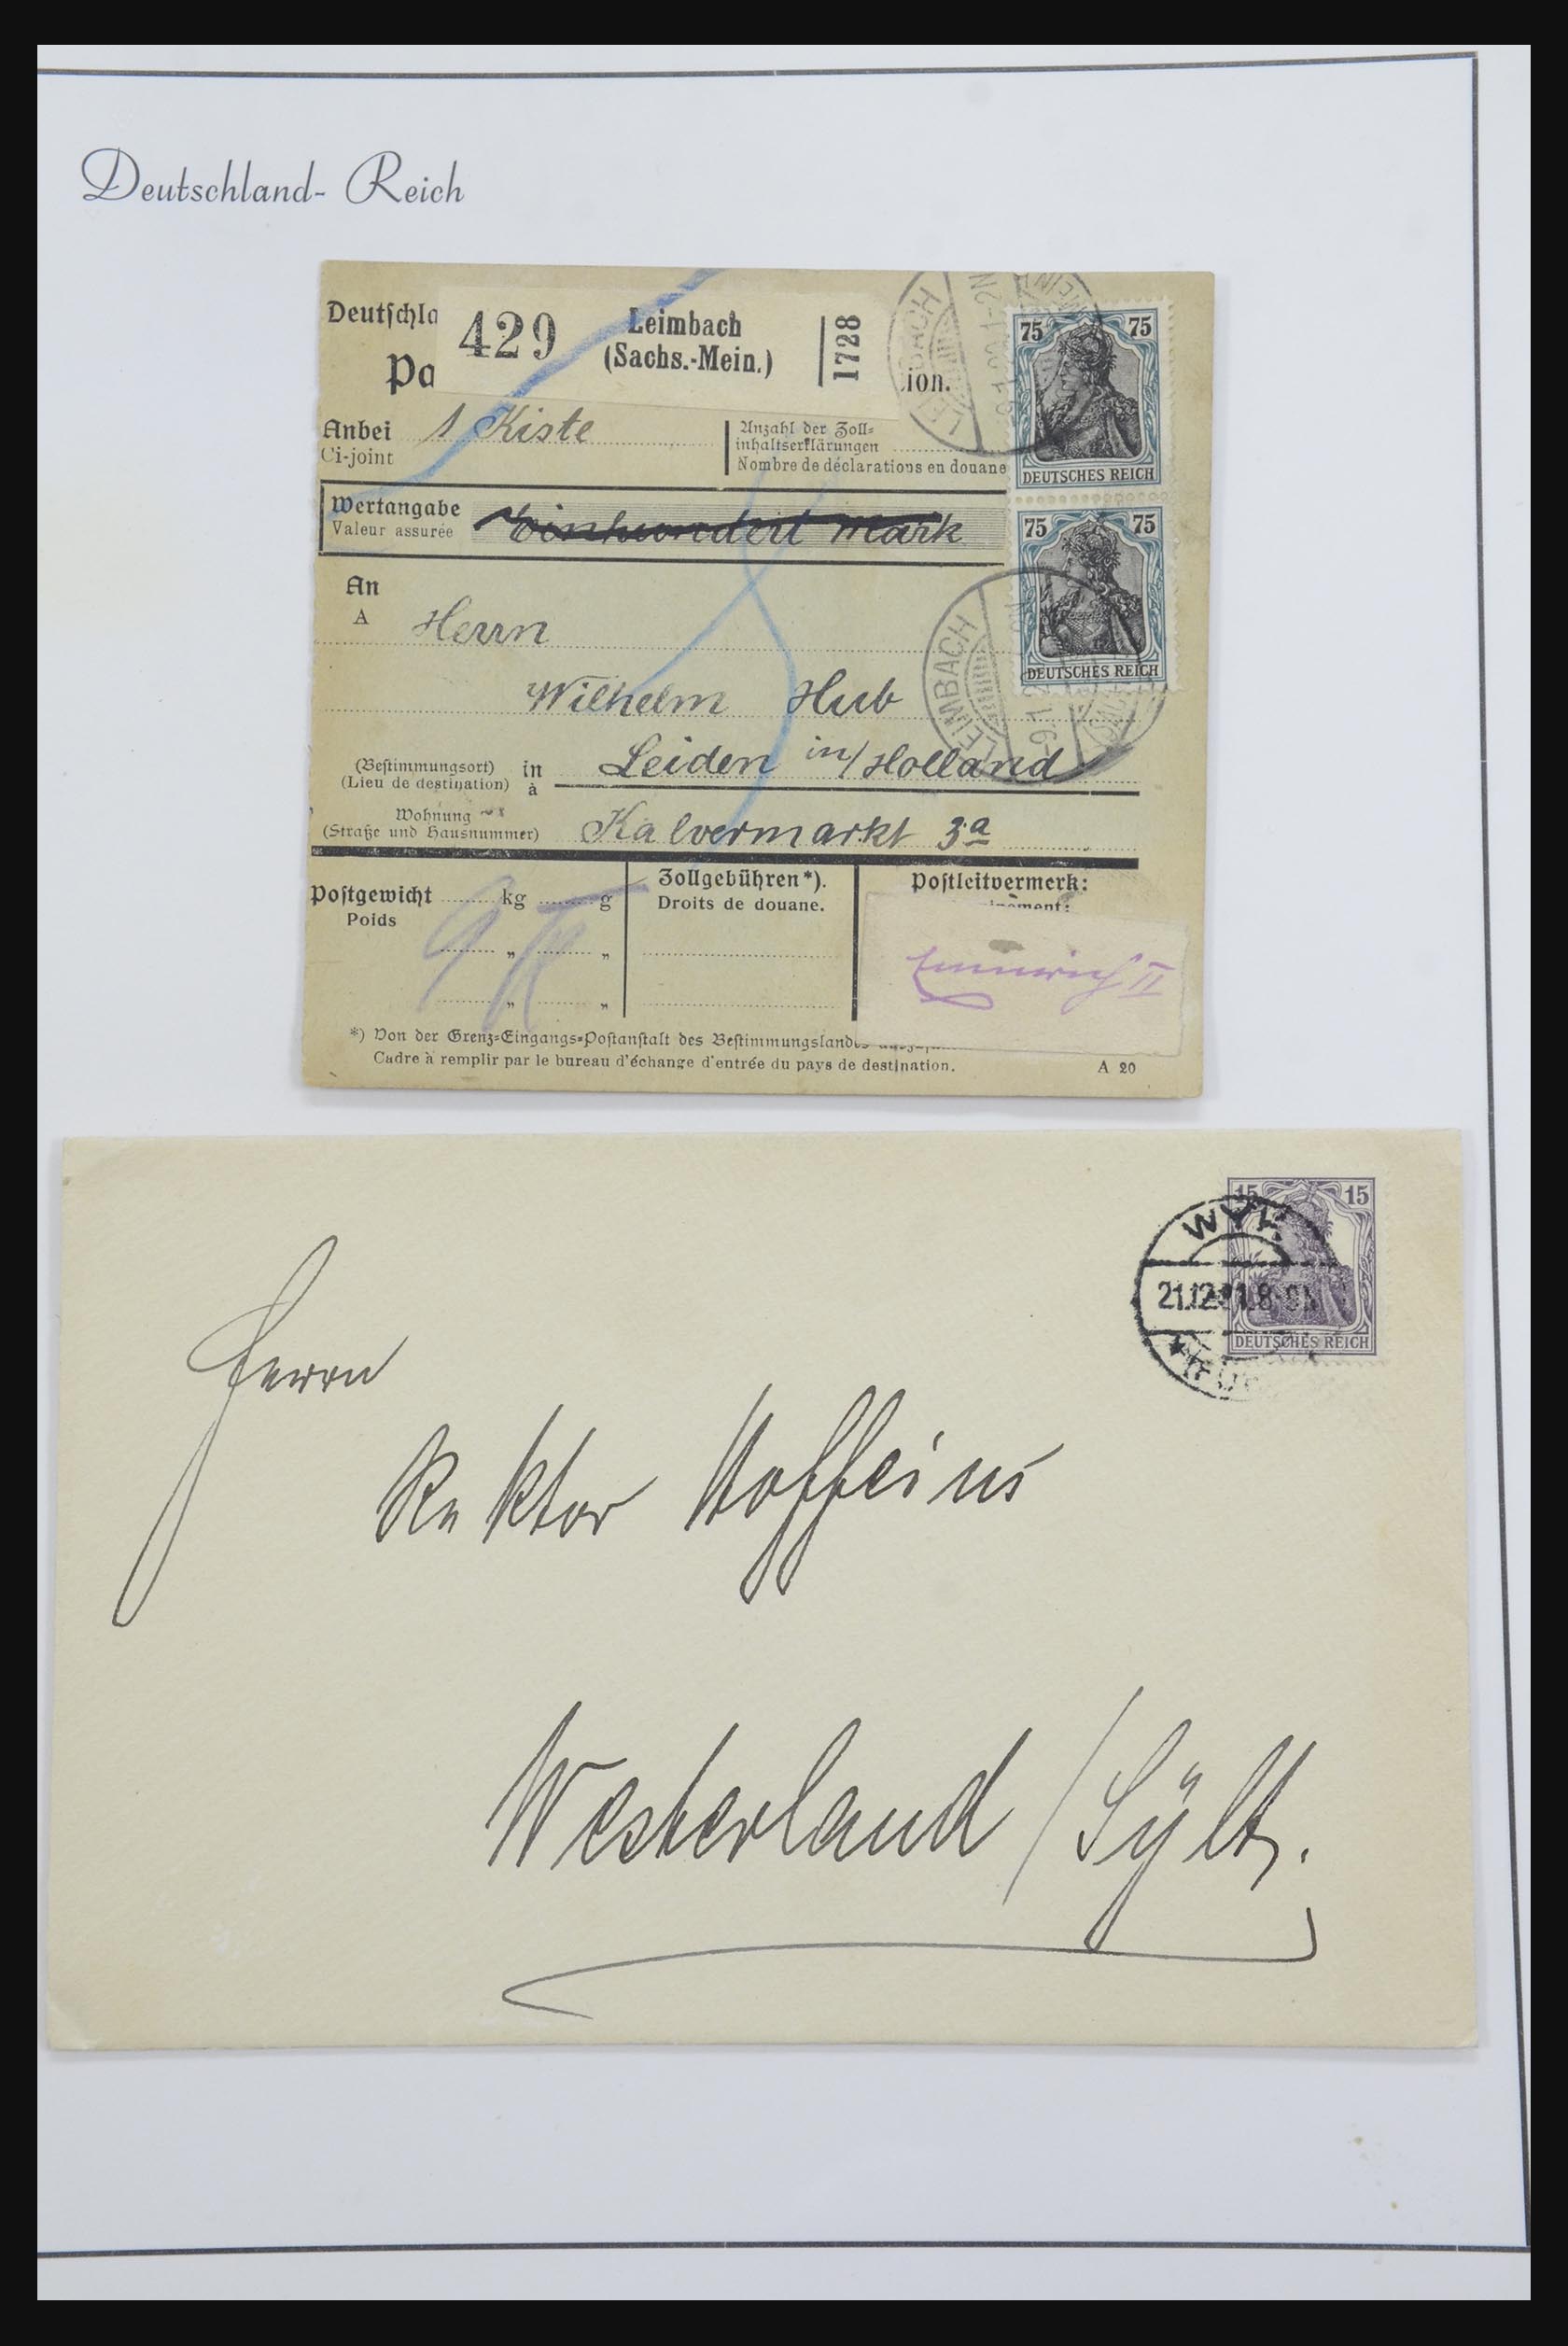 Deutschland- Reich
Deutschla
429
Leimbach
(Sachs.-Mein.)
1728
Po
ion.
Anbei 1 Kiste
Ci-joint
Anzahl der Zoll-
inhaltserklärungen
Nombre de déclarations en douane
75 75
DEUTSCHES REICH
Wertangabe Einhundert Mark
Valeur assurée
75 75
DEUTSCHES REICH
LEIMBACH
An
A
Herrn
Wilhelm Hub
LEIMBACH
(Bestimmungsort) in Leiden in/Holland
(Lieu de destination) à
Wohnung
(Straße und Hausnummer) Kalvermarkt 3a
Postgewicht kg g
Poids
Zollgebühren*).
Droits de douane.
Postleitvermerk:
„ „
„ „
*) Von der Grenz-Eingangs-Postanstalt des Bestimmungslandes
Cadre à remplir par le bureau d'échange d'entrée du pays de destination.
A 20
15 15
DEUTSCHES REICH
WYK
21.12.21.8-9N
Herrn
Rektor Stoffeins
Westerland / Sylt.